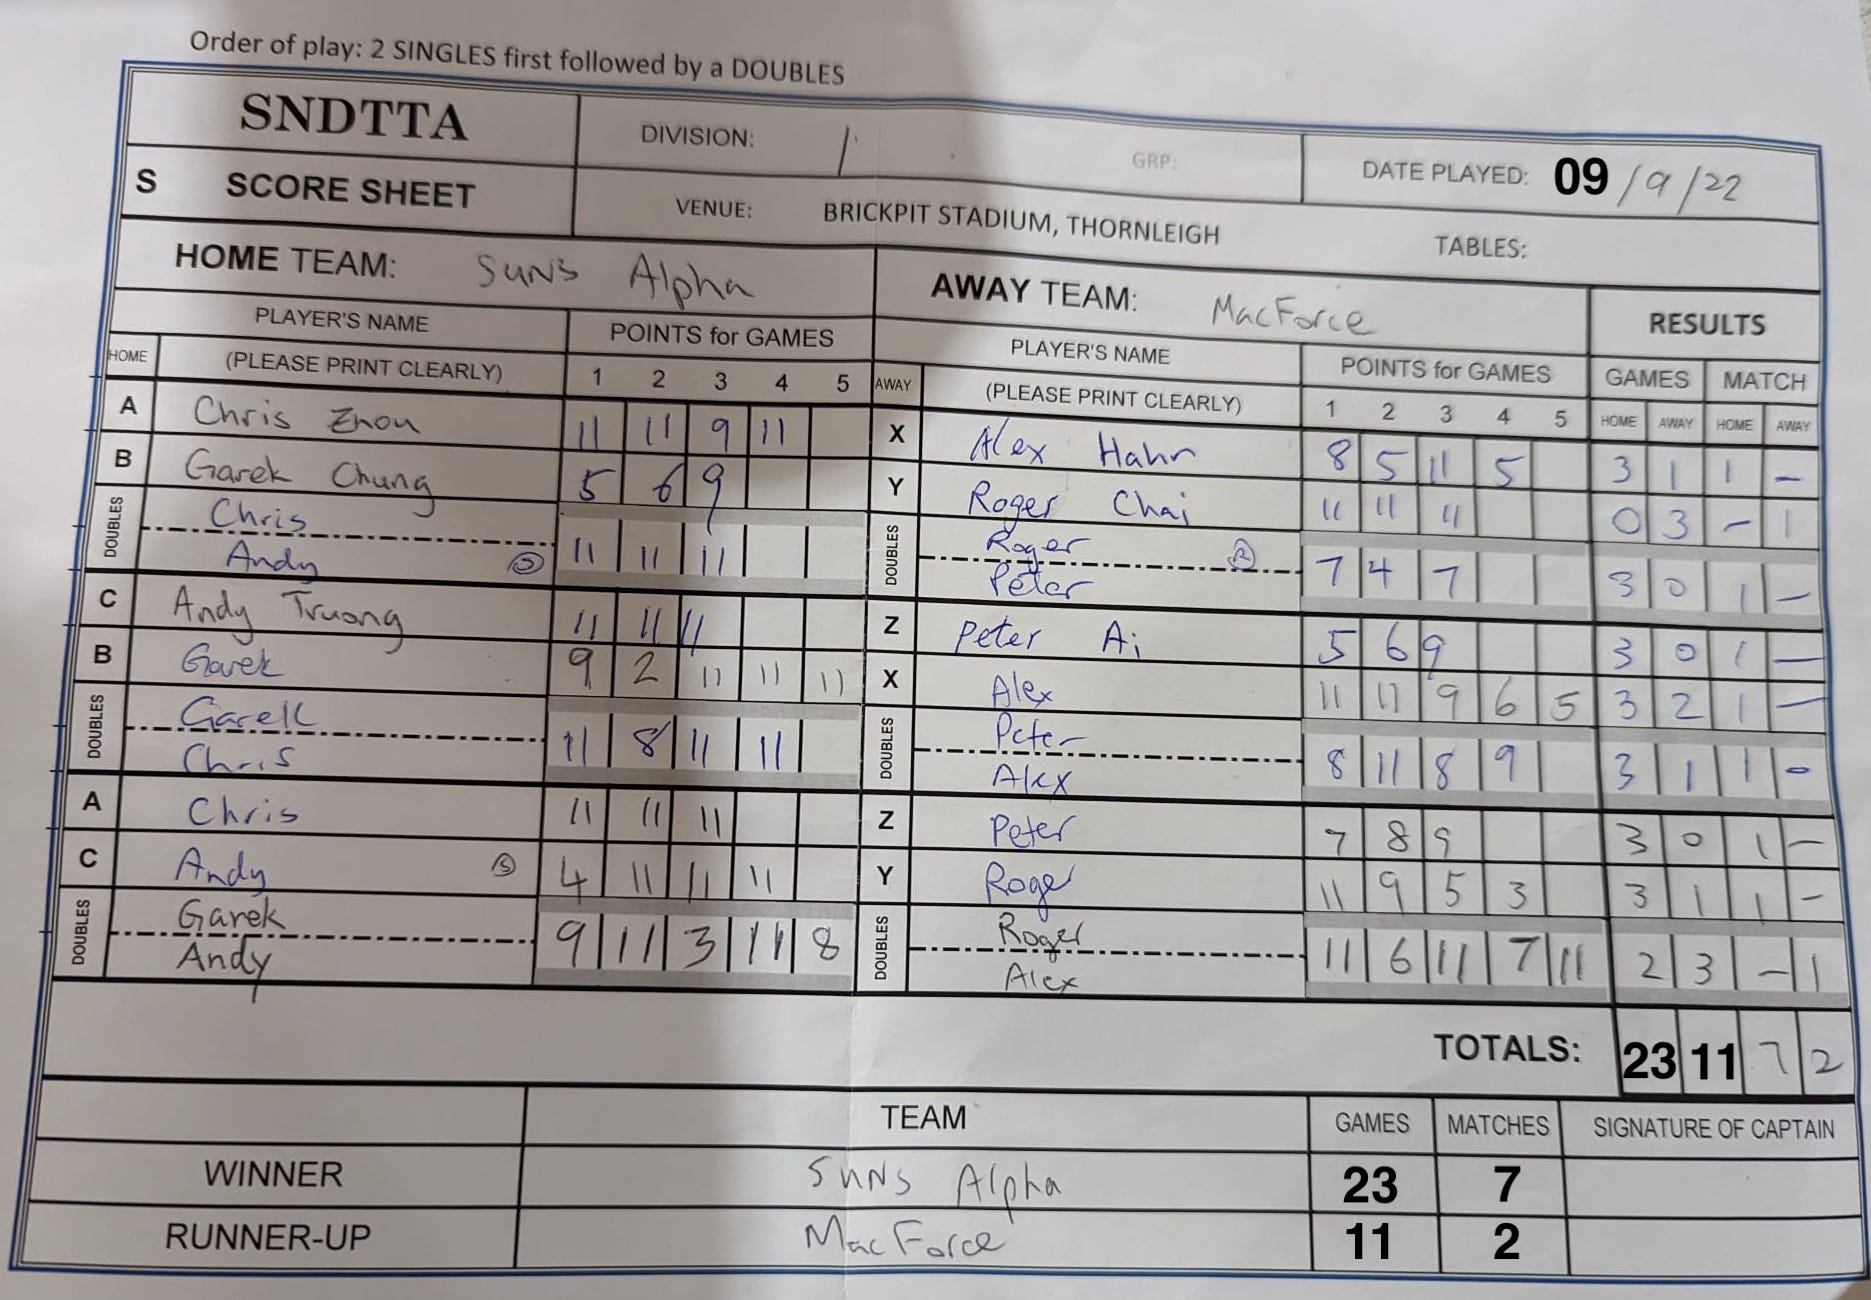 Order of play: 2 SINGLES first followed by a DOUBLES
SNDTTA DIVISION: 1 GRP: DATE PLAYED: 09/9/22
S SCORE SHEET VENUE: BRICKPIT STADIUM, THORNLEIGH TABLES:
HOME TEAM: SUNS Alpha AWAY TEAM: MacForce RESULTS
PLAYER'S NAME POINTS for GAMES PLAYER'S NAME POINTS for GAMES GAMES MATCH
HOME (PLEASE PRINT CLEARLY) 1 2 3 4 5 AWAY (PLEASE PRINT CLEARLY) 1 2 3 4 5 HOME AWAY HOME AWAY
A Chris Zhou 11 11 9 11 X Alex Hahn 8 5 11 5 3 1 1 -
B Garek Chung 5 6 9 Y Roger Chai 11 11 11 0 3 - 1
DOUBLES Chris 11 11 11 DOUBLES Roger 7 4 7 3 0 1 -
Andy S Peter R
C Andy Truong 11 11 11 Z Peter Ai 5 6 9 3 0 1 -
B Garek 9 2 11 11 11 X Alex 11 11 9 6 5 3 2 1 -
DOUBLES Garek 11 8 11 11 DOUBLES Peter 8 11 8 9 3 1 1 -
Chris Alex
A Chris 11 11 11 Z Peter 7 8 9 3 0 1 -
C Andy S 4 11 11 11 Y Roger 11 9 5 3 3 1 1 -
DOUBLES Garek 9 11 3 11 8 DOUBLES Roger 11 6 11 7 11 2 3 - 1
Andy Alex
TOTALS: 23 11 7 2
TEAM GAMES MATCHES SIGNATURE OF CAPTAIN
WINNER SUNS Alpha 23 7
RUNNER-UP MacForce 11 2